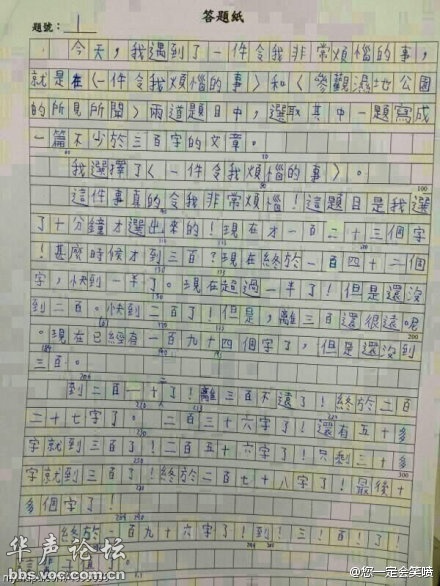 答題紙
題號：1
今天，我遇到了一件令我非常煩惱的事，
就是在〈一件令我煩惱的事〉和〈參觀濕地公園
的所見所聞〉兩道題目中，選取其中一題寫成
一篇不少於三百字的文章。
我選擇了〈一件令我煩惱的事〉。
這件事真的令我非常煩惱！這題目是我選
了十分鐘才選出來的！現在才一百二十三個字
！甚麼時候才到三百？現在終於一百四十二個
字，快到一半了。現在超過一半了！但是還沒
到二百。快到二百了！但是，離三百還很遠。
。現在已經有一百九十四個字了，但是還沒到
三百。
到二百一十了！離三百不遠了！終於二百
二十七字了。二百三十六字了！還有五十多
字就到三百了！二百五十六字了！只剩三十多
字就到三百了！終於二百七十八字了！最後十
多個字了！
終於二百九十六字了！到！三！百！了！
华声论坛
bbs.voc.com.cn
@您一定会笑喷